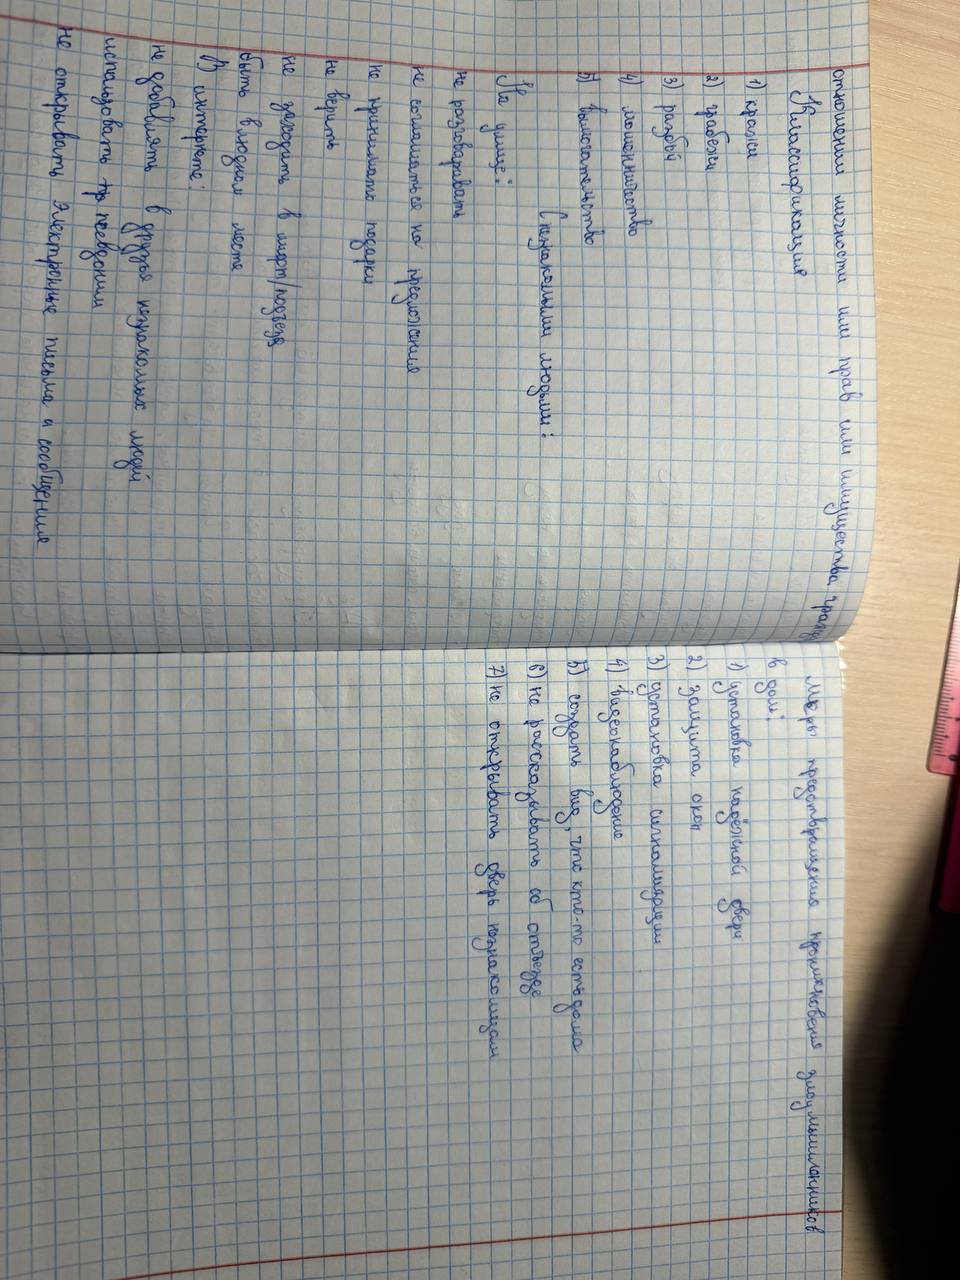 отношении личности или прав или имущества гражд
Классификация
1) кражи
2) грабежи
3) разбой
4) мошенничество
5) вымогательство
С незнакомыми людьми:
На улице:
не разговаривать
не соглашаться на предложения
не принимать подарки
не верить
не заходить в лифт/подъезд
быть в людном месте
В интернете:
не добавлять в друзья незнакомых людей
использовать псевдоним
не открывать электронные письма и сообщения
Меры предотвращения проникновения злоумышленников
в дом:
1) установка надёжной двери
2) защита окон
3) установка сигнализации
4) видеонаблюдение
5) создать вид, что кто-то есть дома
6) не рассказывать об отъезде
7) не открывать дверь незнакомцам